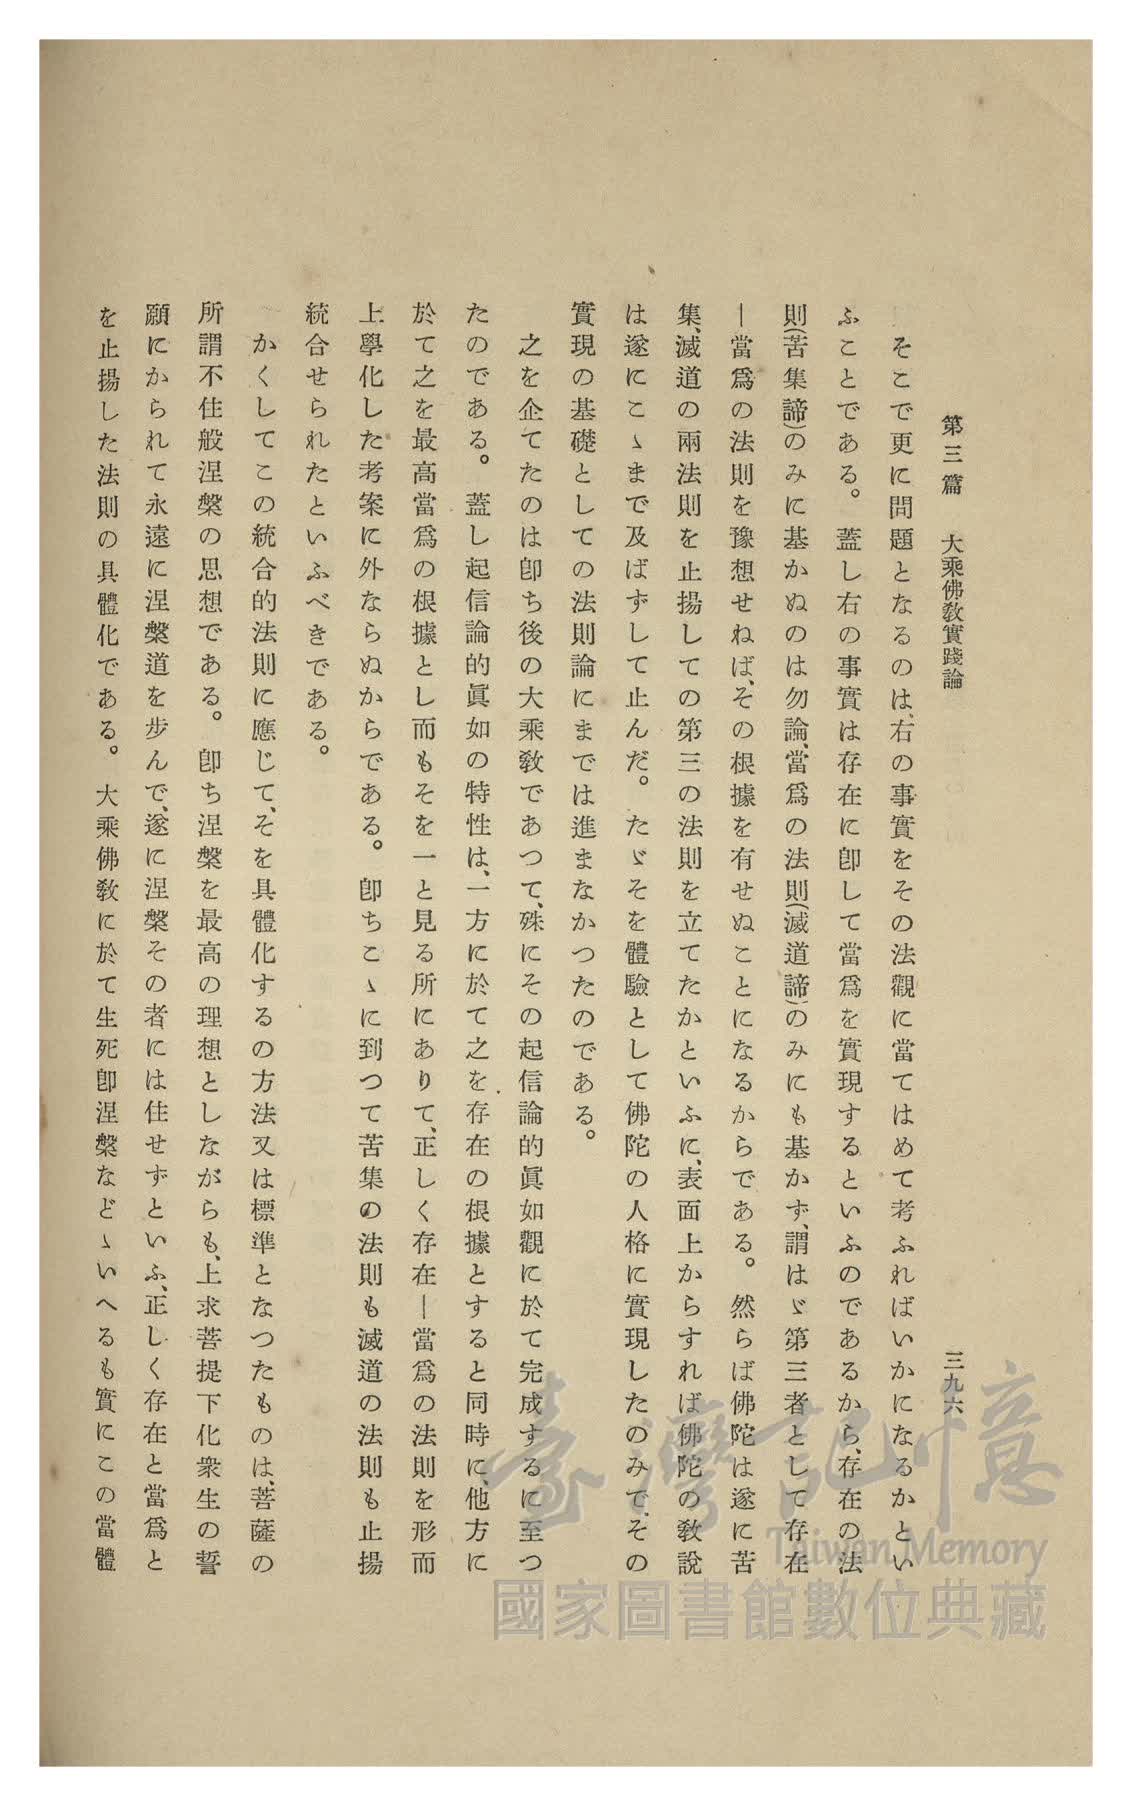 第三篇　大乘佛敎實踐論
三九六
そこで更に問題となるのは、右の事實をその法觀に當てはめて考ふればいかになるかとい
ふことである。蓋し右の事實は存在に卽して當爲を實現するといふのであるから、存在の法
則(苦集諦)のみに基かぬのは勿論、當爲の法則(滅道諦)のみにも基かず、謂はゞ第三者として存在
―當爲の法則を豫想せねば、その根據を有せぬことになるからである。然らば佛陀は遂に苦
集、滅道の兩法則を止揚しての第三の法則を立てたかといふに、表面上からすれば佛陀の敎說
は遂にこゝまで及ばずして止んだ。たゞそを體驗として佛陀の人格に實現したのみで、その
實現の基礎としての法則論にまでは進まなかつたのである。
之を企てたのは卽ち後の大乘敎であつて、殊にその起信論的眞如觀に於て完成するに至つ
たのである。蓋し起信論的眞如の特性は、一方に於て之を存在の根據とすると同時に、他方に
於て之を最高當爲の根據とし而もそを一と見る所にありて、正しく存在―當爲の法則を形而
上學化した考案に外ならぬからである。卽ちこゝに到つて苦集の法則も滅道の法則も止揚
統合せられたといふべきである。
かくしてこの統合的法則に應じて、そを具體化するの方法又は標準となつたものは、菩薩の
所謂不住般涅槃の思想である。卽ち涅槃を最高の理想としながらも、上求菩提下化衆生の誓
願にかられて永遠に涅槃道を步んで、遂に涅槃その者には住せずといふ、正しく存在と當爲と
を止揚した法則の具體化である。大乘佛敎に於て生死卽涅槃などゝいへるも實にこの當體
臺灣記憶
Taiwan Memory
國家圖書館數位典藏